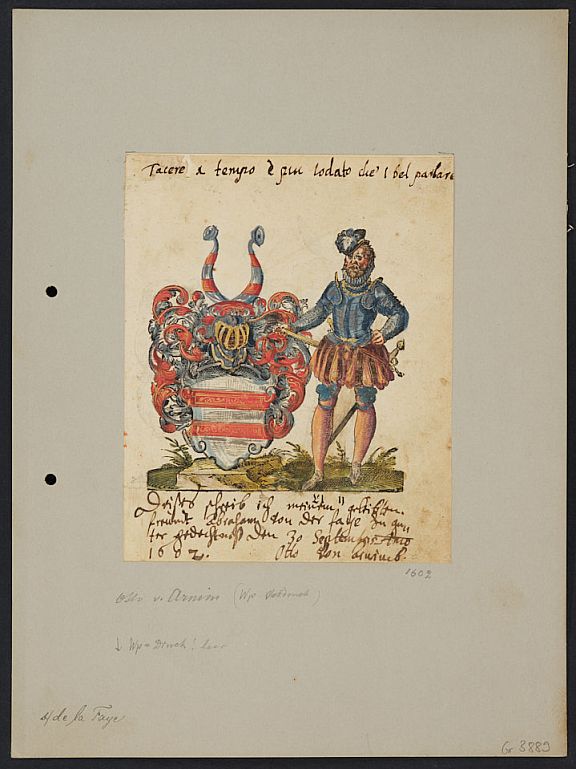 Tacere a tempo è piu lodato che'l bel parlare
Dises schreib ich meinem geliebten
freundt Abraham von der faye zu gut
ter gedechtnoß den 30 Septembris Ano
1602. Otto von arnimb.
1602
Otto v. Arnim (Wp
↓ Wp = Druck! leer
s/ de la Faye
Gr 3889